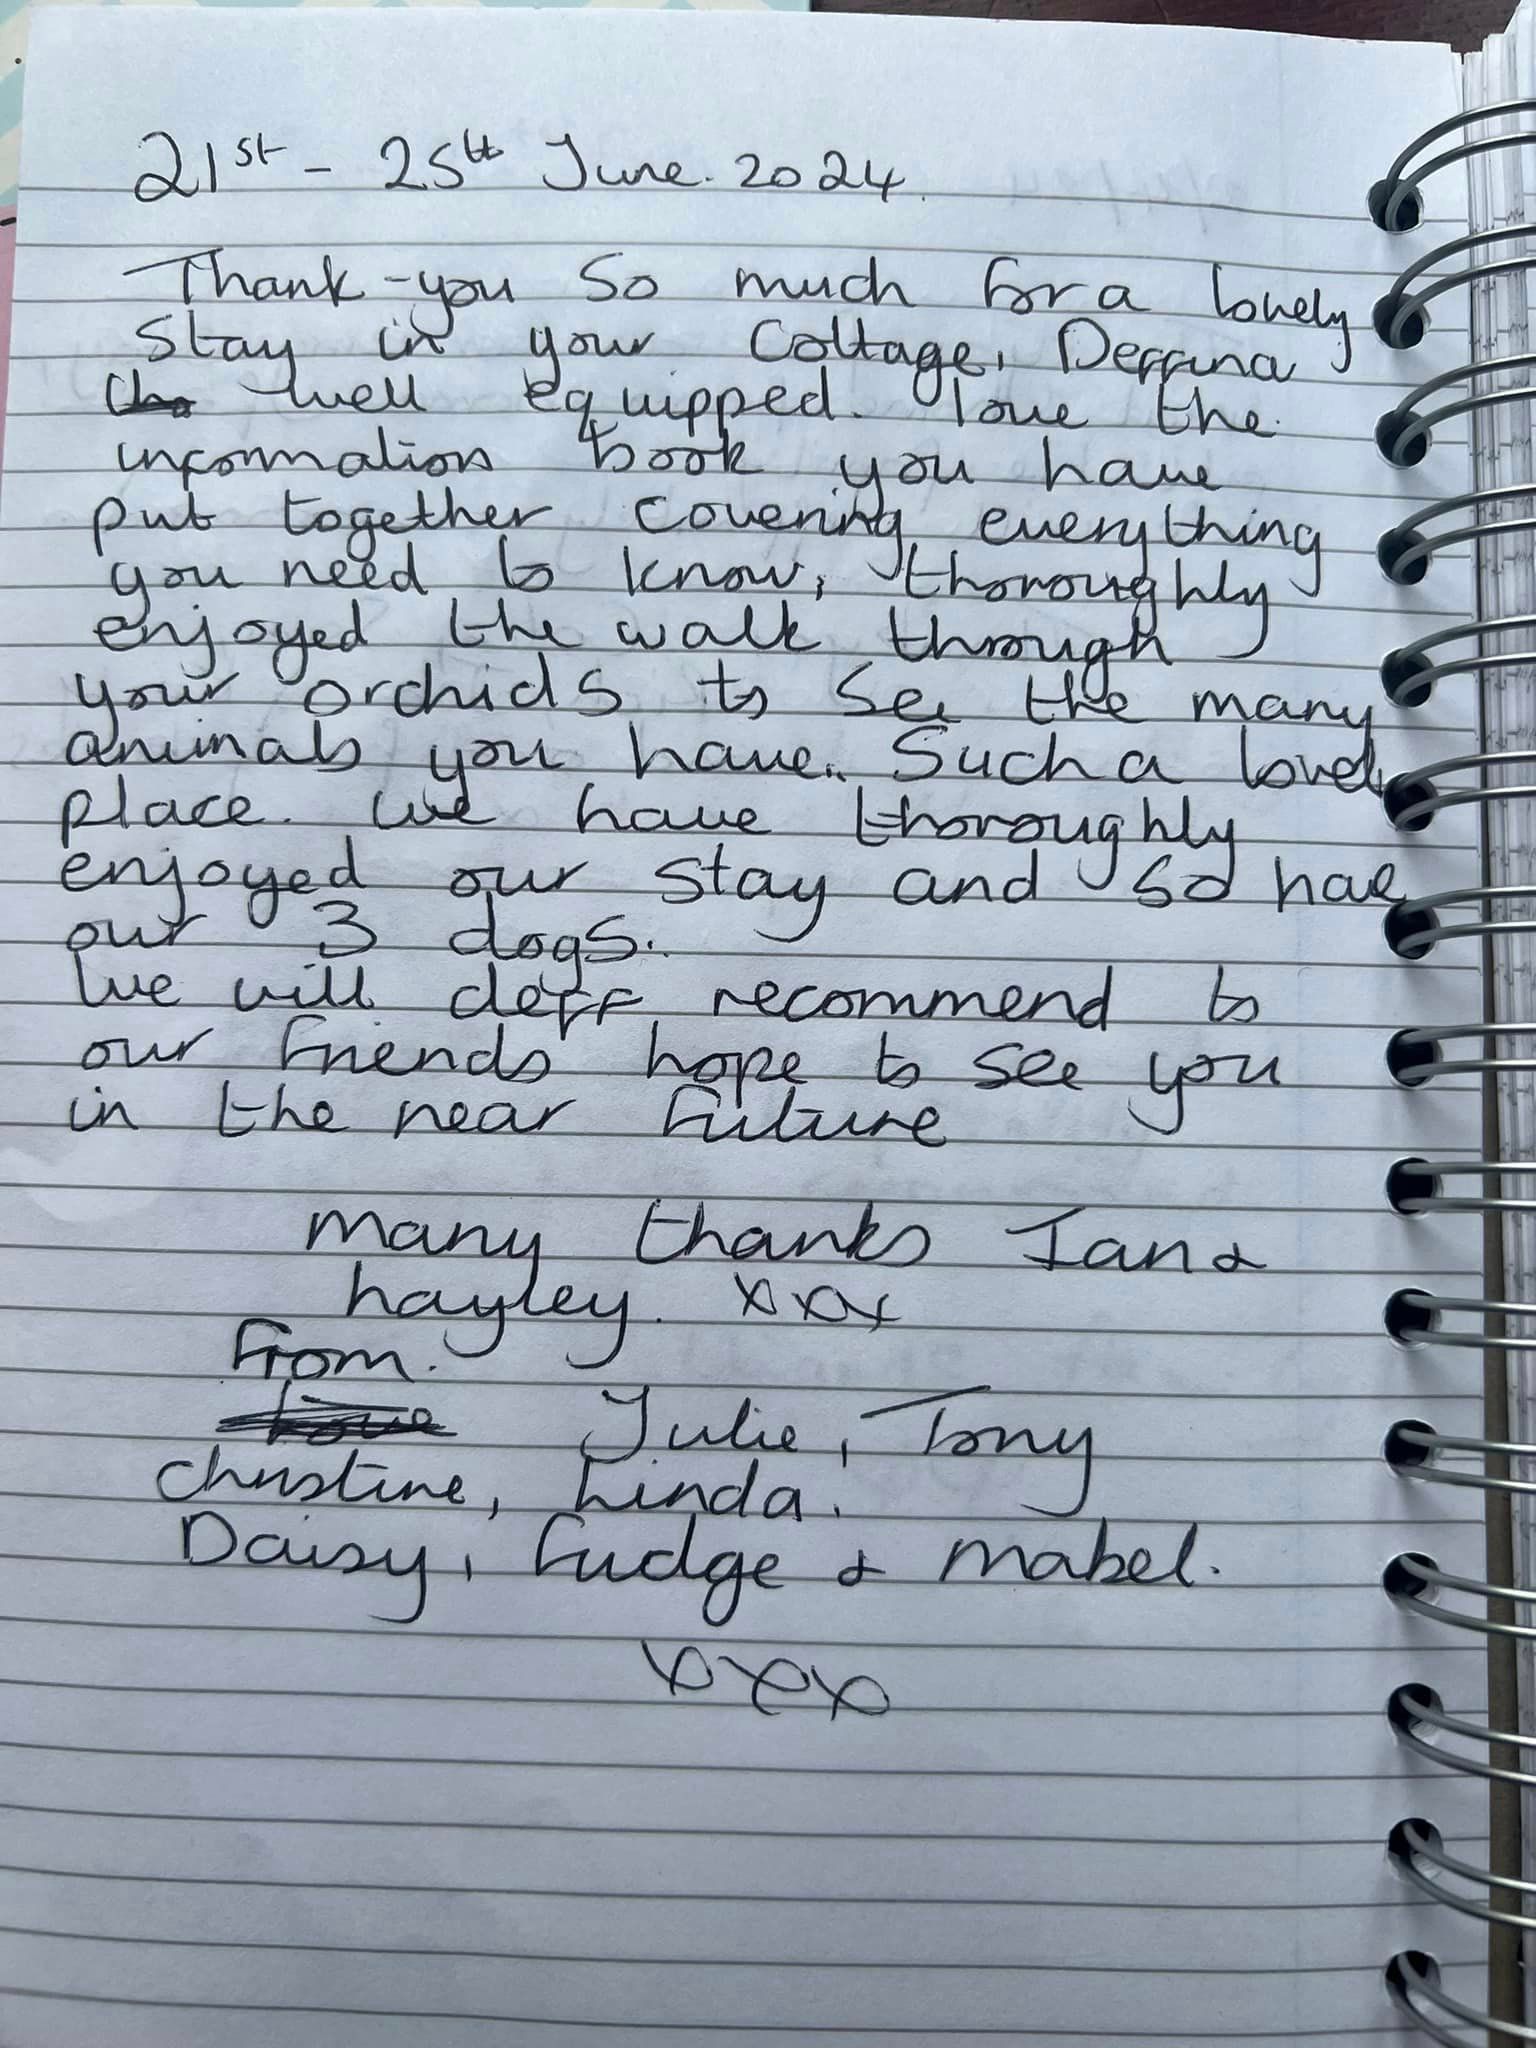 21st - 25th June. 2024.
Thank-you so much for a lovely
stay in your cottage, Deffina
well equipped. love the
information book you have
put together covering everything
you need to know, thoroughly
enjoyed the walk through
your orchids to see the many
animals you have.. Such a lovely
place. we have thoroughly
enjoyed our stay and so have
our 3 dogs.
We will deff recommend to
our friends hope to see you
in the near future
many thanks Ian &
hayley. xxx
From.
Julie, Tony
Christine, Linda.
Daisy, Fudge & mabel.
xxx